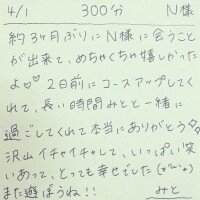 4/1 300分 N様
約3ヶ月ぶりにN様に会うこと
が出来て、めちゃくちゃ嬉しかった
よ♡♡2日前にコースアップしてく
れて、長い時間みとと一緒に
過ごしてくれて本当にありがとう
沢山イチャイチャして、いっぱい笑
いあって、とっても幸せでした
また遊ぼうね!!
みと